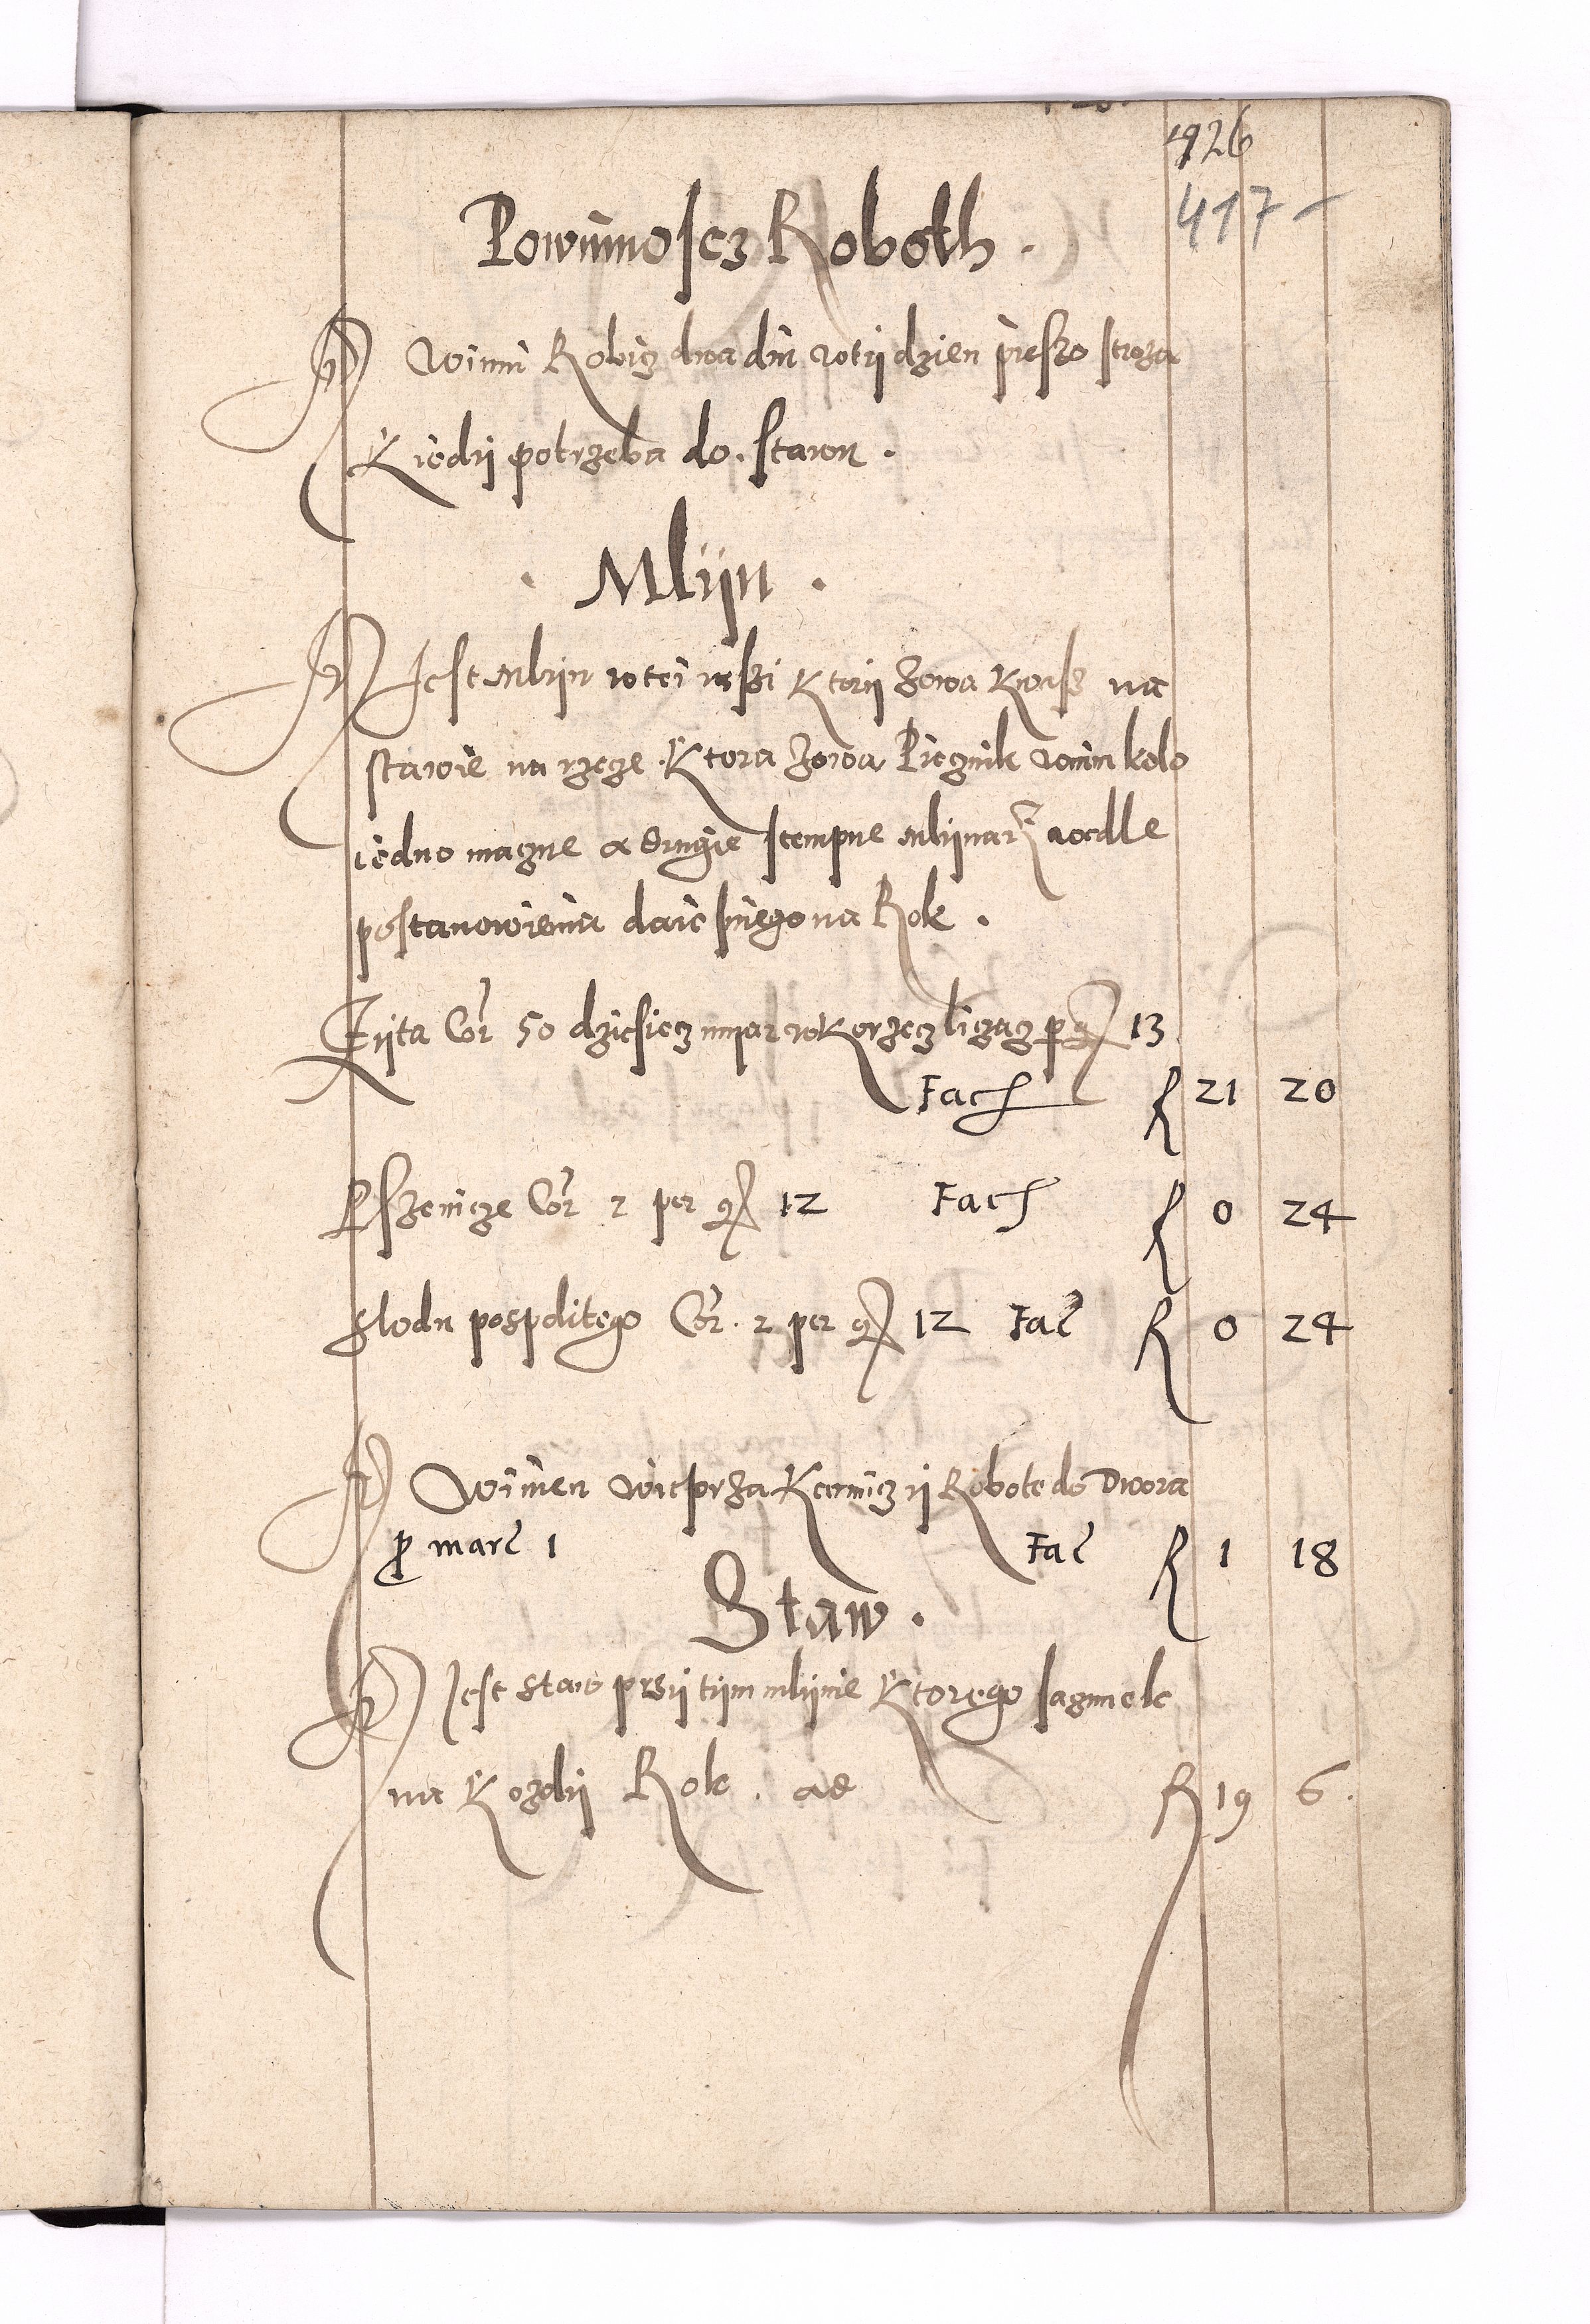 426
417
Powinnoscz Roboth.
Winni Robicz dwa dni wtÿdzien pieszo stroza
Kiedÿ potrzeba do. stawu.
Mlÿn.
Jest Mlyn wtei wsszi Ktorÿ zowa na
stawie na rzeze Ktora zowa wnim kolo
iedno maczne a drugie stempne mlÿnarz wedle
postanowienia daie sniego na Rok.
Zÿta Cor 50 dziesiecz miar w Korzecz liczacz per gr 13
Fac R 21 20
Pszenicze Cor 2 per gr 12 Fac R 0 24
slodu pospolitego Cor. 2 per gr 12 Fac R 0 24
Winien wieprza Karmicz ÿ Robote do Dwora
pro marc 1 Fac R 1 18
Staw.
Jest staw przÿ tÿm mlÿnie Ktorego
na Kozdÿ Rok. ad R 19 6.